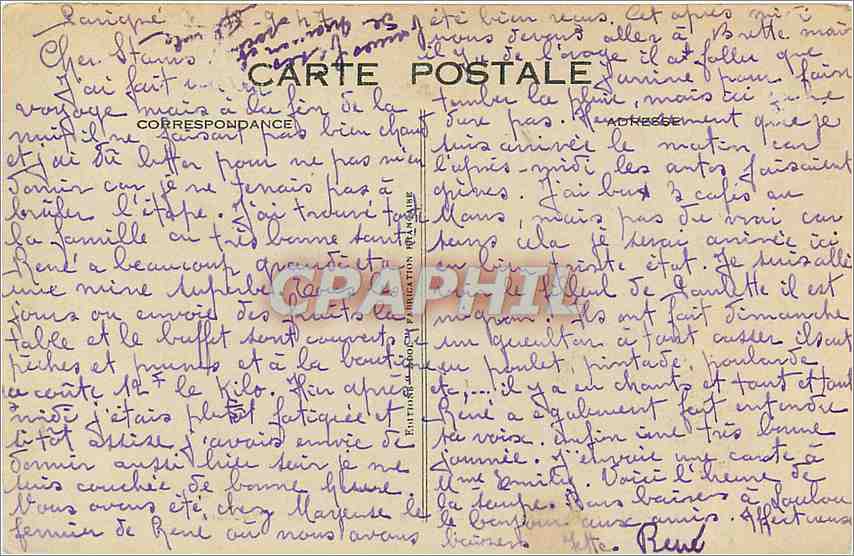 Parigné
Cher Stanis
J'ai fait un
voyage mais à la fin de la
nuit il ne faisait pas bien chaud
et j'ai dû lutter pour ne pas m'en
dormir car je ne tenais pas à
brûler l'étape. J'ai trouvé toute
la famille en très bonne santé
René a beaucoup grandi et a
une mine superbe. Tous les
jours on envoie des fruits la
table et le buffet sont couverts de
pêches et prunes et à la boutique
ça coûte 12F le Kilo. Hier après
midi j'étais plutôt fatiguée et
sitôt assise j'avais envie de
dormir aussi hier soir je me
suis couchée de bonne heure.
Nous avons été chez le
fermier de René où nous avons
CARTE POSTALE
CORRESPONDANCE
ADRESSE
FABRICATION FRANÇAISE
été bien reçus. Cet après midi
nous devons aller à Brette mais
il y a de l'orage il a fallu que
j'arrive pour faire
tomber la pluie, mais ici
dure pas. Heureusement que je
suis arrivée le matin car
l'après-midi les autos faisaient
grèves. J'ai bu 3 cafés au
Mans, mais pas du vrai car
sans cela je serai arrivée ici
en bien triste état. Je suis allée
de Paulette il est
mignon. Ils ont fait dimanche
un gueulton à tout casser ils ont
eu poulet, pintade, poularde
etc,... il y a eu chants et tout et tout
René a également fait entendre
sa voix. enfin une très bonne
journée. J'envoie une carte à
Mme Emily. Voici l'heure de
la soupe. Bons baisers à Loulou
le bonjour aux amis. Affectueux
baisers
René
CPAPHIL